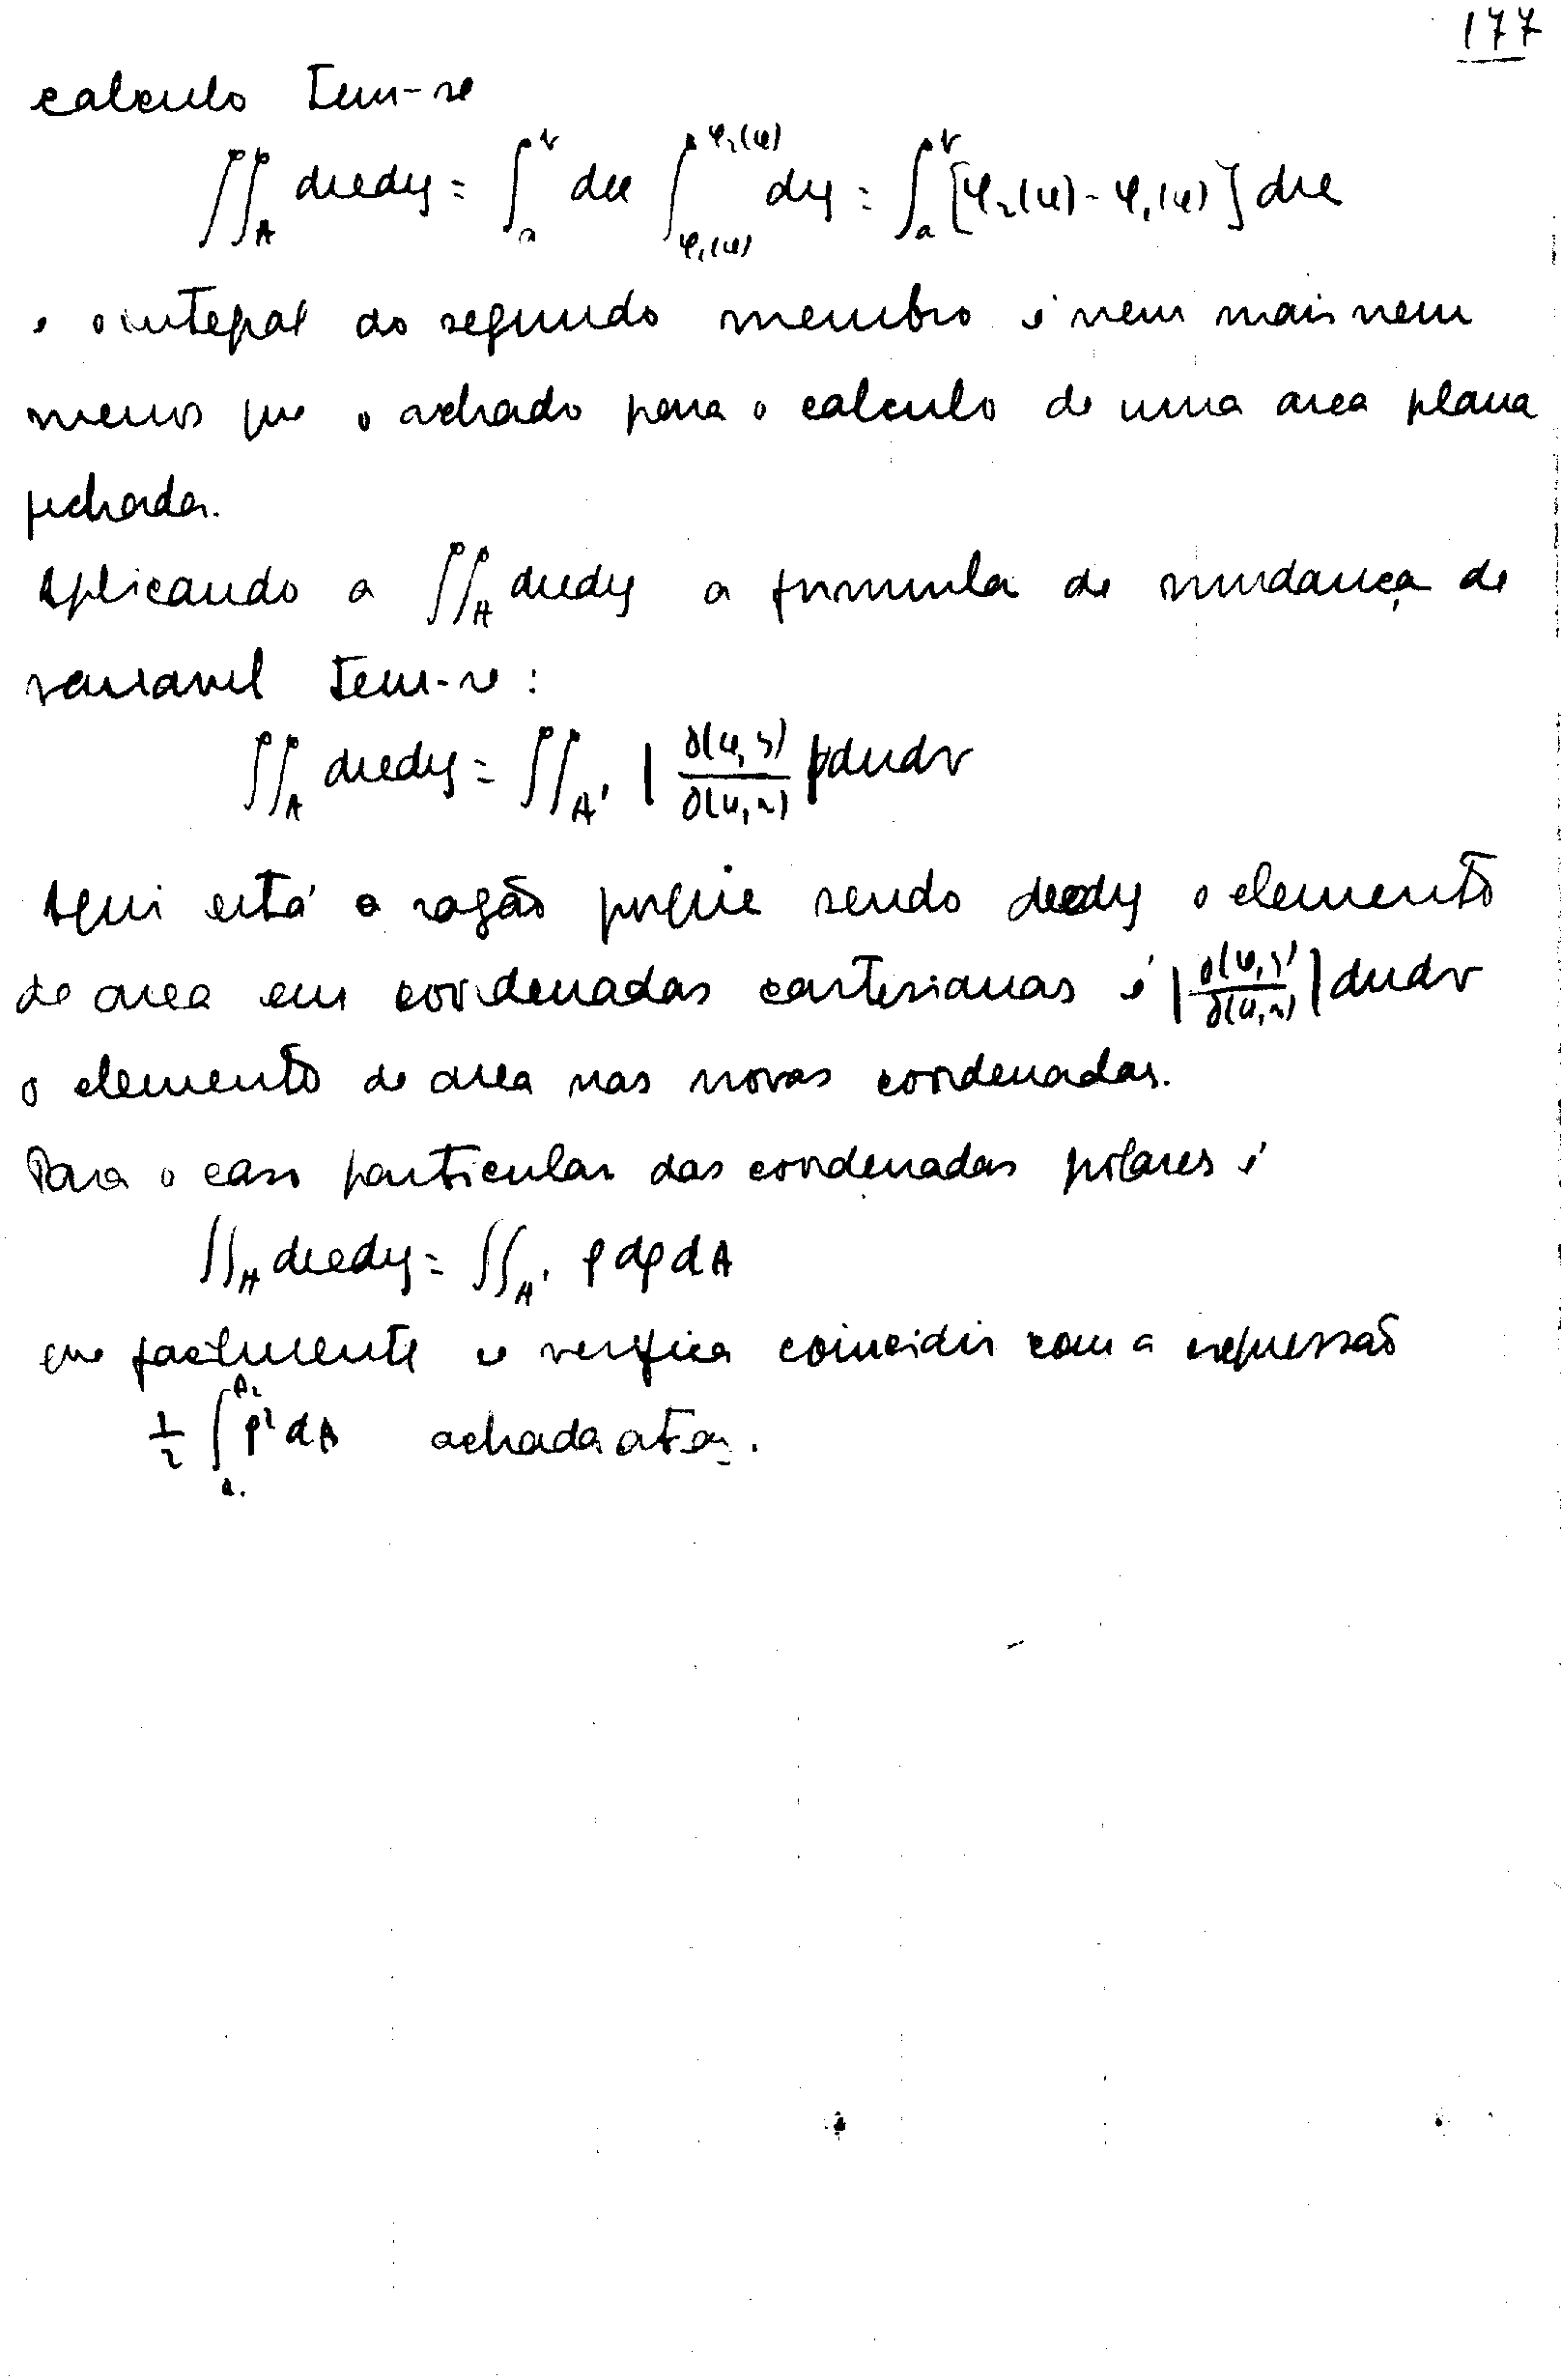 177
calculo tem-se
∬_A dxdy = ∫_a^b dx ∫_{φ₁(x)}^{φ₂(x)} dy = ∫_a^b [φ₂(x) - φ₁(x)] dx
e o integral do segundo membro é nem mais nem
menos que o achado para o calculo de uma area plana
fechada.
Aplicando a ∬_A dxdy a formula de mudança de
variavel tem-se:
∬_A dxdy = ∬_A' |∂(x,y)/∂(u,v)| dudv
Aqui está a razão porque sendo dxdy o elemento
de area em coordenadas cartesianas é |∂(x,y)/∂(u,v)| dudv
o elemento de area nas novas coordenadas.
Para o caso particular das coordenadas polares é
∬_A dxdy = ∬_A' ρ dρ dθ
que facilmente se verifica coincidir com a expressão
½ ∫_{θ₁}^{θ₂} ρ² dθ achada atraz.